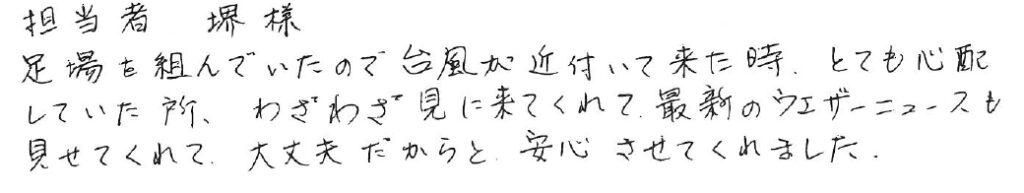 担当者 堺様
足場を組んでいたので台風が近付いて来た時、とても心配
していた所、わざわざ見に来てくれて、最新のウエザーニュースも
見せてくれて、大丈夫だからと、安心させてくれました。